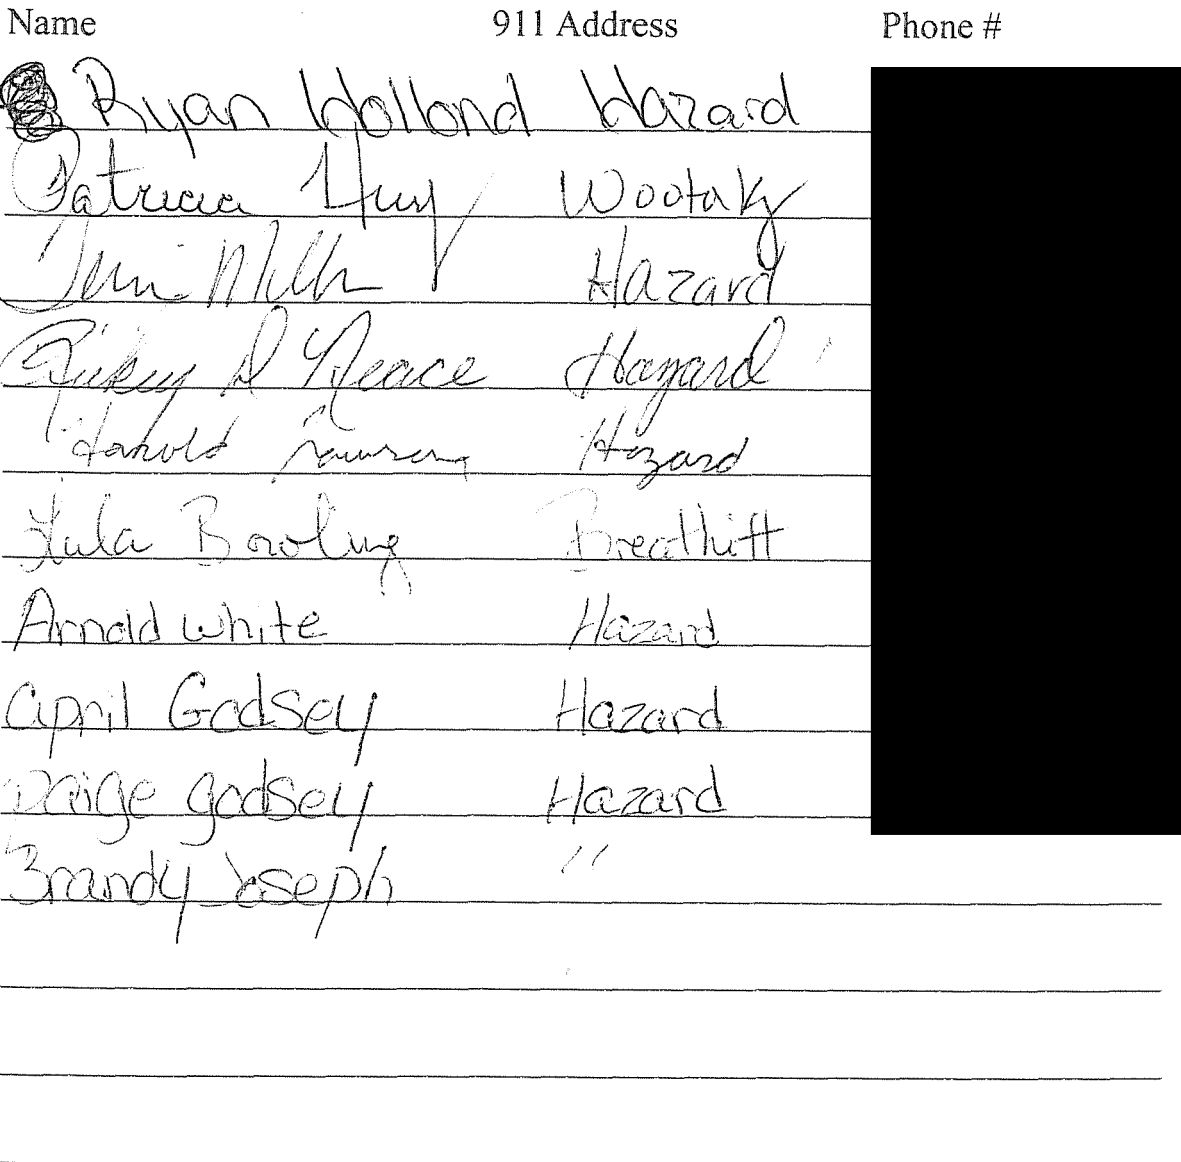 Name 911 Address Phone #
Ryan Hollond Hazard
Patricia Wootaky
Terri Miller Hazard
Rickey D Neace Hazard
Harold Hazard
Lula Bowling Breathitt
Arnold White Hazard
April Godsey Hazard
Paige godsey Hazard
Brandy Joseph "